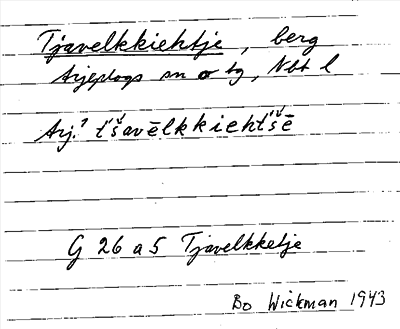 Tjavelkkiehtje, berg
Arjeplogs sn o tg, Nbt l
Arj. t'šavēlkkieht'šē
G 26 a 5 Tjavelkketje
Bo Wickman 1943